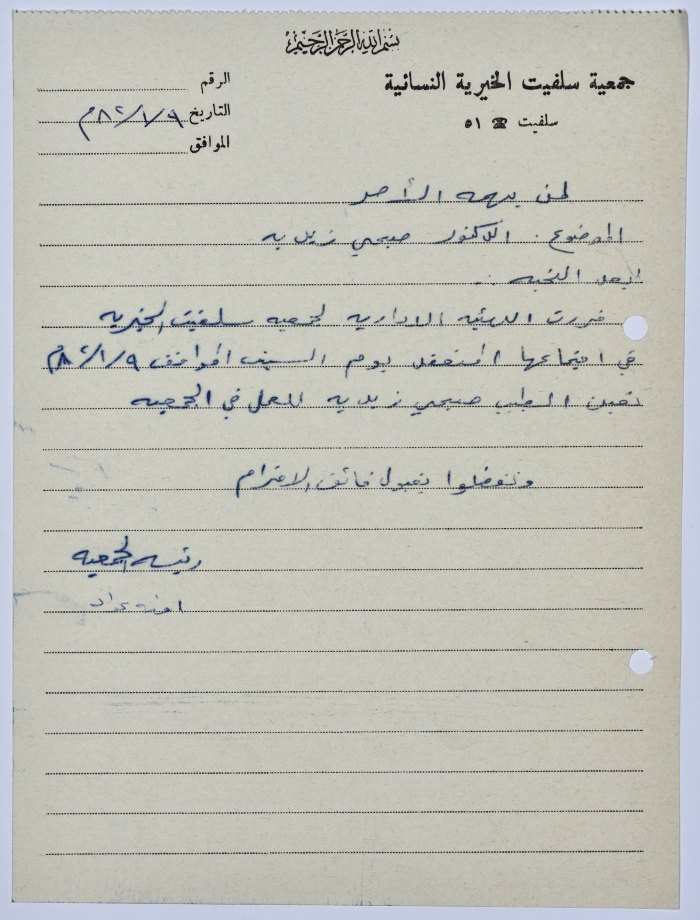 بسم الله الرحمن الرحيم
جمعية سلفيت الخيرية النسائية
سلفيت ☎ ٥١
الرقم
التاريخ ٨٢/١/٩م
الموافق
لمن يهمه الأمر
الموضوع: الدكتور صبحي زيديه
بعد التحيه..
قررت الهيئه الاداريه لجمعيه سلفيت الخيريه
في اجتماعها المنعقد يوم السبت الموافق ٨٢/١/٩م
تعيين الطبيب صبحي زيديه للعمل في الجمعيه
وتفضلوا بقبول فائق الاحترام
رئيسه الجمعيه
امنه عواد